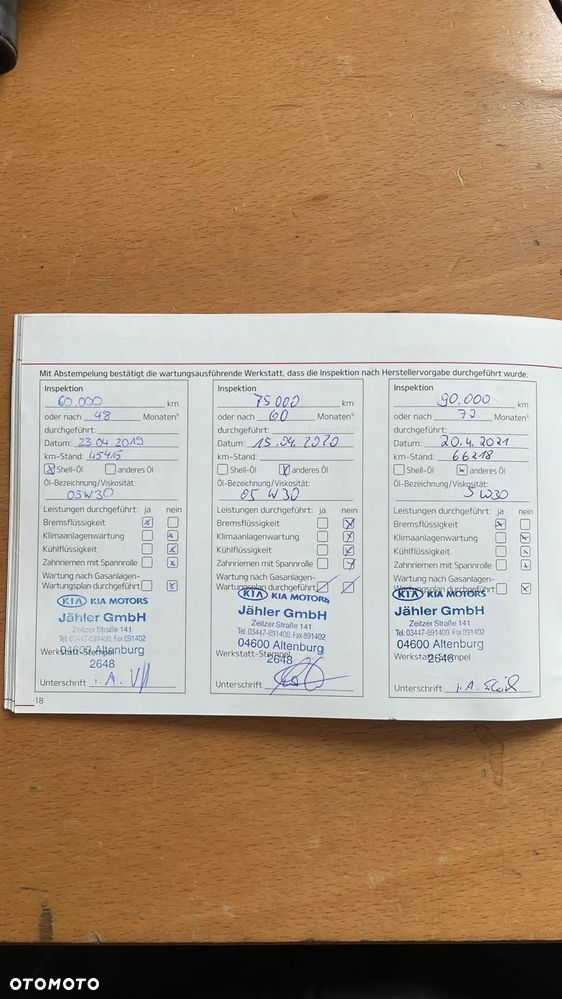 Mit Abstempelung bestätigt die wartungsausführende Werkstatt, dass die Inspektion nach Herstellervorgabe durchgeführt wurde.
Inspektion
60.000 km
oder nach 48 Monaten
durchgeführt:
Datum: 23.04.2019
km-Stand: 45415
Shell-Öl anderes Öl
Öl-Bezeichnung/Viskosität:
05W30
Leistungen durchgeführt: ja nein
Bremsflüssigkeit
Klimaanlagenwartung
Kühlflüssigkeit
Zahnriemen mit Spannrolle
Wartung nach Gasanlagen-
Wartungsplan durchgeführt
KIA KIA MOTORS
Jähler GmbH
Zeitzer Straße 141
Tel. 03447-891400, Fax 891402
04600 Altenburg
Werkstatt-Stempel
2648
Unterschrift i.A.
Inspektion
75000 km
oder nach 60 Monaten
durchgeführt:
Datum: 15.04.2020
km-Stand:
Shell-Öl anderes Öl
Öl-Bezeichnung/Viskosität:
05 W30
Leistungen durchgeführt: ja nein
Bremsflüssigkeit
Klimaanlagenwartung
Kühlflüssigkeit
Zahnriemen mit Spannrolle
Wartung nach Gasanlagen-
Wartungsplan durchgeführt
KIA KIA MOTORS
Jähler GmbH
Zeitzer Straße 141
Tel. 03447-891400, Fax 891402
04600 Altenburg
Werkstatt-Stempel
2648
Unterschrift
Inspektion
90.000 km
oder nach 72 Monaten
durchgeführt:
Datum: 20.4.2021
km-Stand: 66218
Shell-Öl anderes Öl
Öl-Bezeichnung/Viskosität:
5W30
Leistungen durchgeführt: ja nein
Bremsflüssigkeit
Klimaanlagenwartung
Kühlflüssigkeit
Zahnriemen mit Spannrolle
Wartung nach Gasanlagen-
Wartungsplan durchgeführt
KIA KIA MOTORS
Jähler GmbH
Zeitzer Straße 141
Tel. 03447-891400, Fax 891402
04600 Altenburg
Werkstatt-Stempel
2648
Unterschrift i.A.
18
OTOMOTO